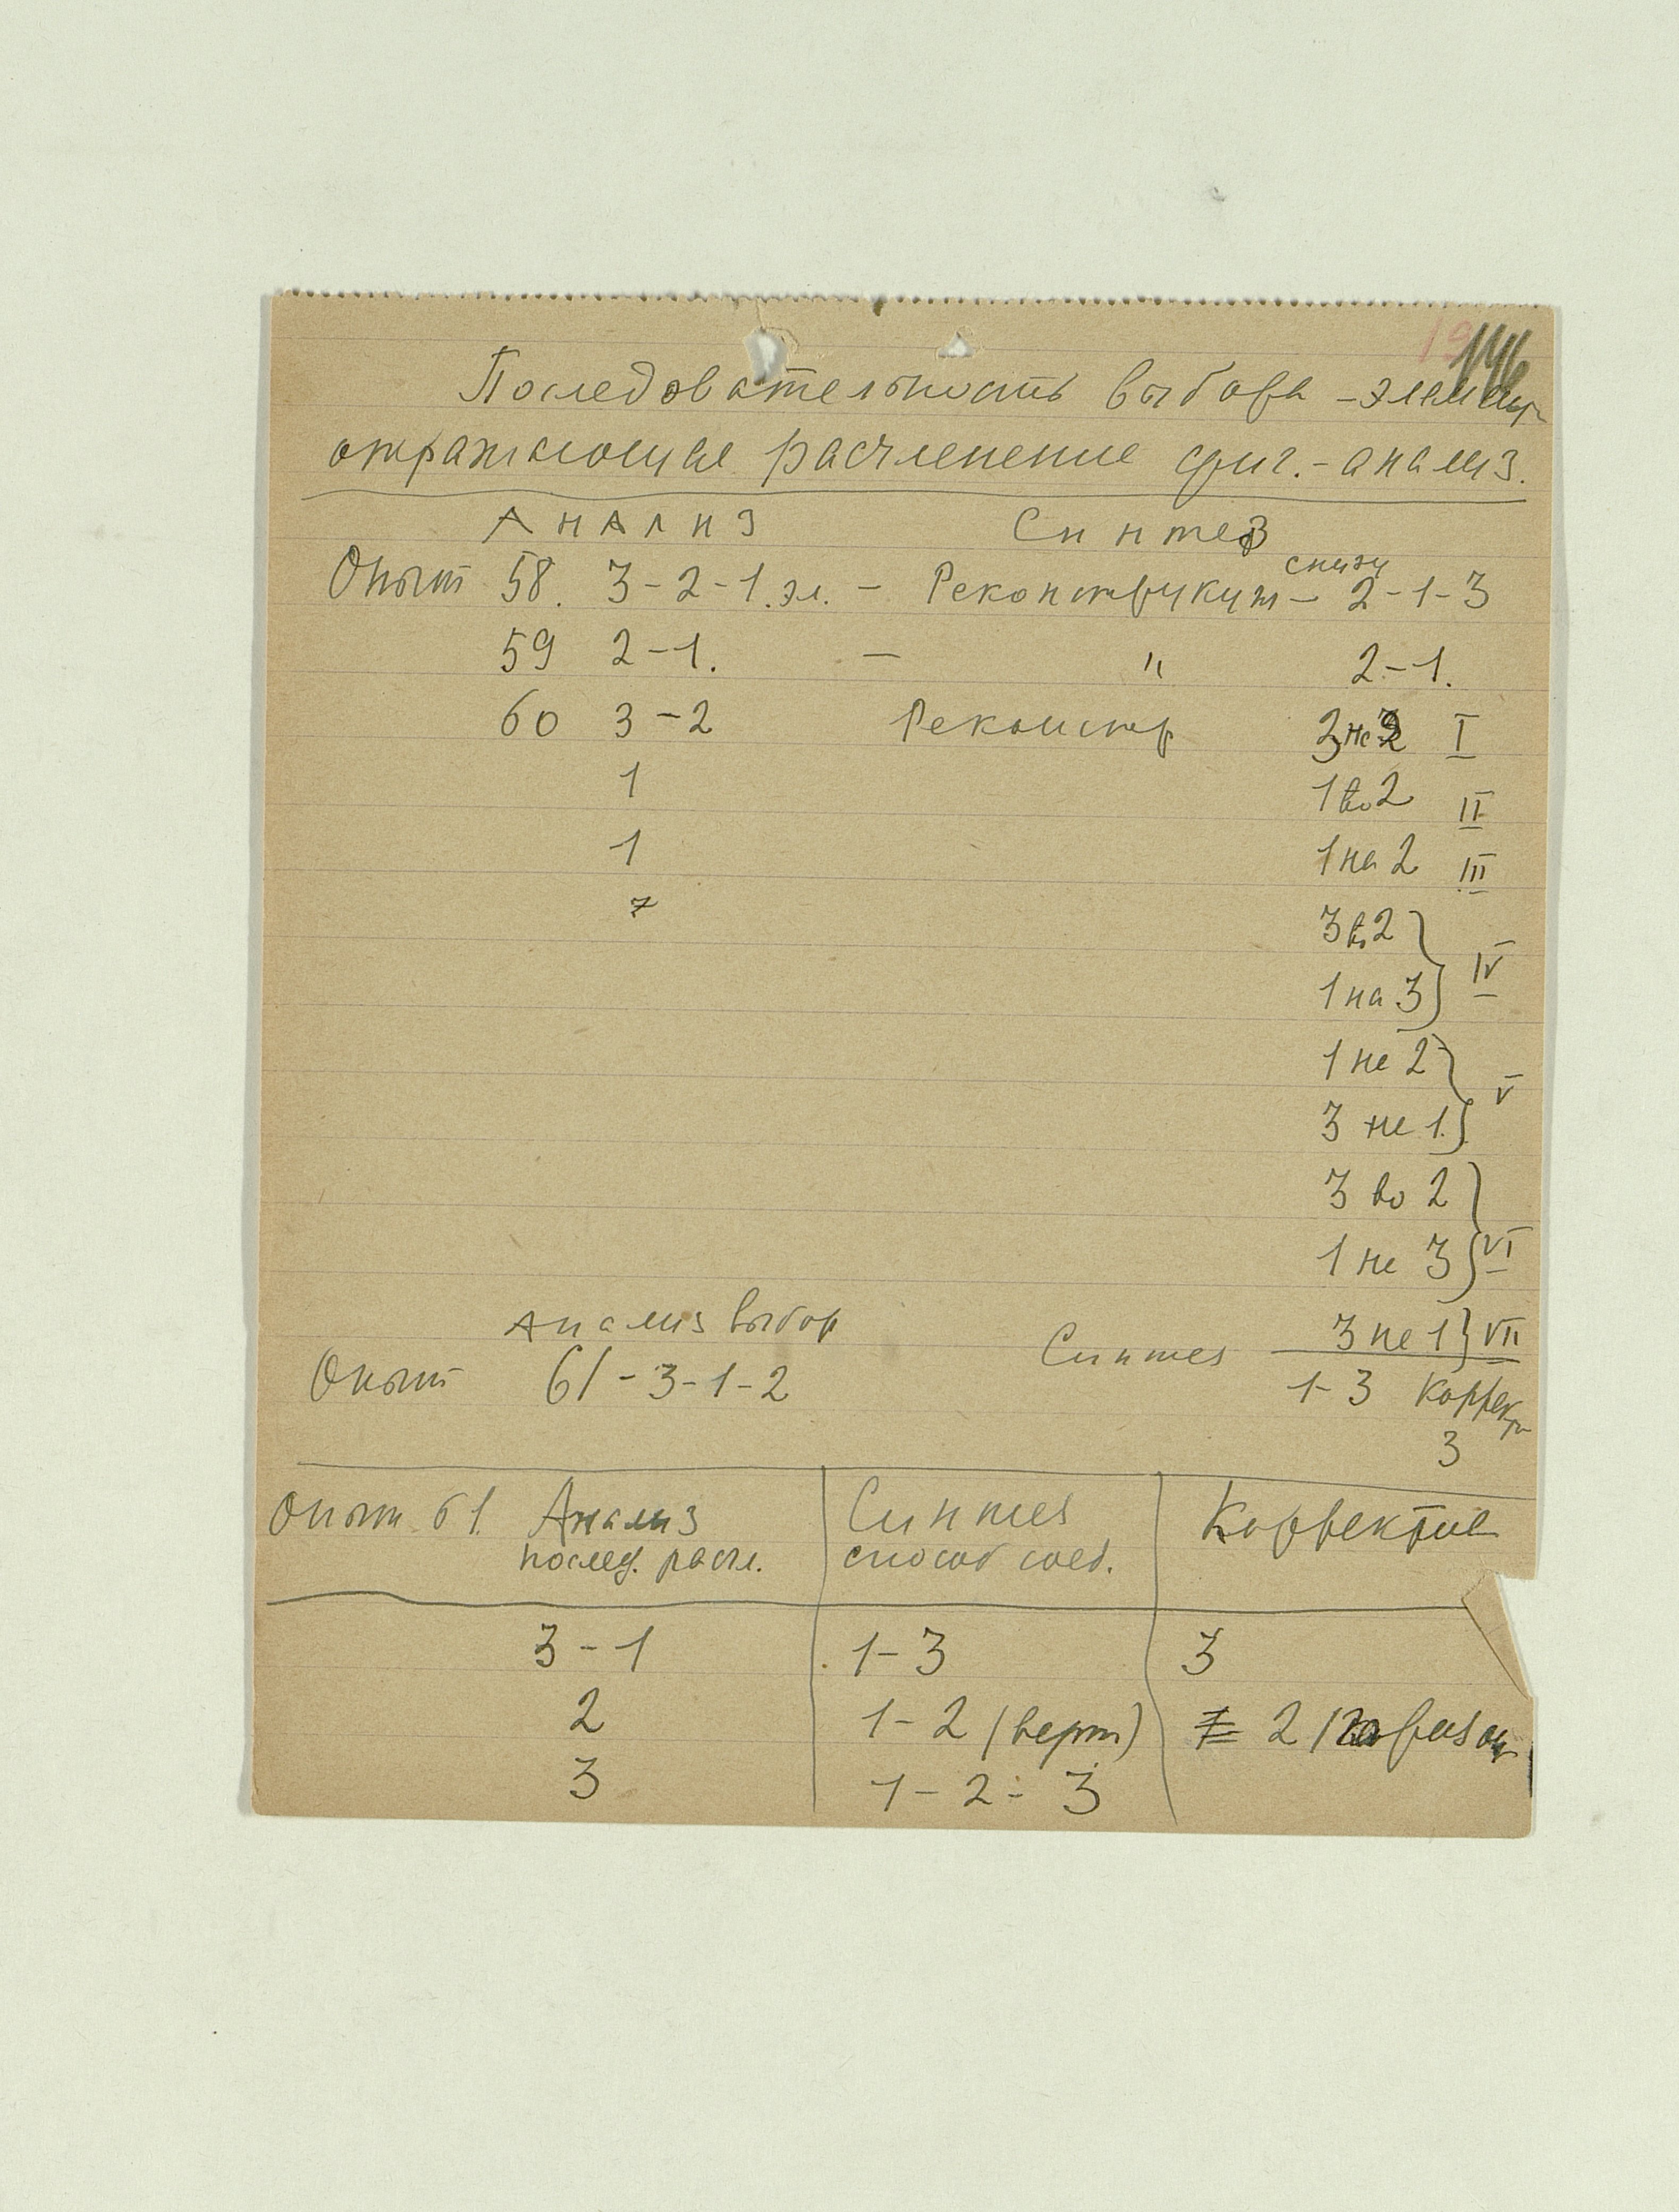 146
Последовательность выбора – элемент
отражающие расчленение фиг. – анализ.
Анализ Синтез
Опыт 58. 3-2-1. эл. – Реконструкция – снизу 2-1-3
59 2-1. – " 2-1.
60 3-2 Реконстр I
1 1 во 2 II
1 1 на 2 III
3 во 2
1 на 3 } IV
1 не 2
3 не 1. } V
3 во 2
1 не 3 } VI
Анализ выбор 3 не 1 } VII
Опыт 61 - 3-1-2 Синтез 1-3 Корректи
3
Опыт 61. Анализ Синтез Коррекция
послед. расч. способ соед.
3-1 1-3 3
2 1-2 (верт) 2
3 1-2-3